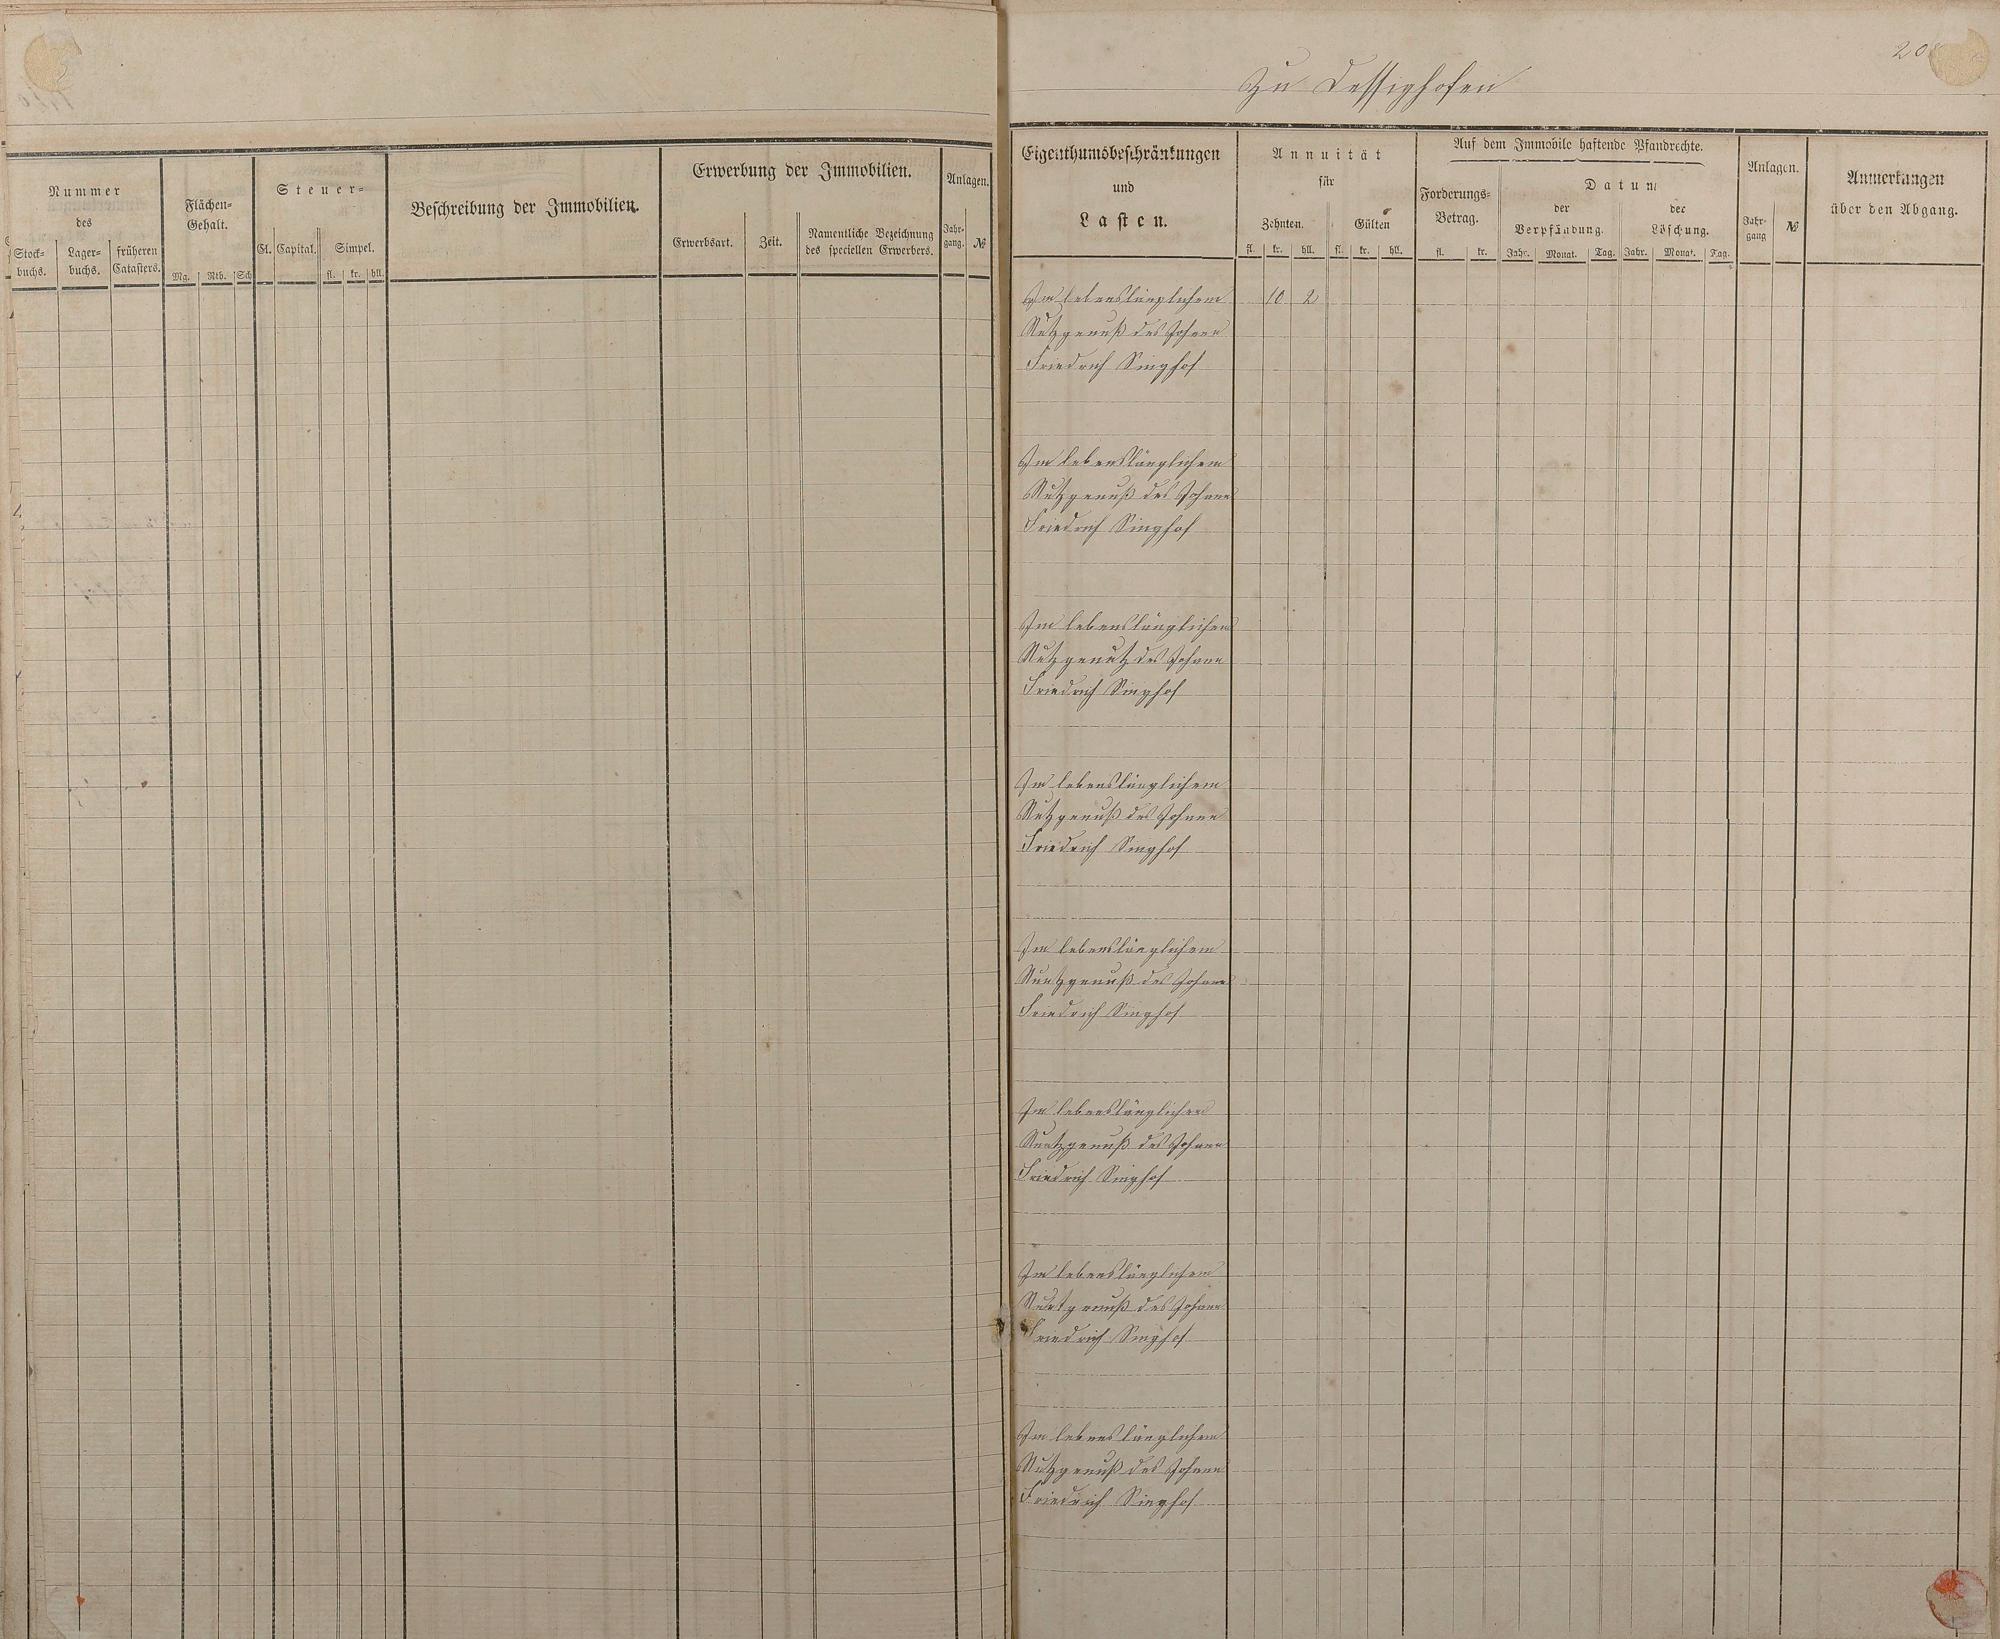 Nummer
des
Stock=
buchs.
Lager=
buchs.
früheren
Catasters.
Flächen=
Gehalt.
Mg. Rth. Sch
Steuer=
Cl. Capital. Simpel.
fl. kr. hll.
Beschreibung der Immobilien.
Erwerbung der Immobilien.
Erwerbsart. Zeit. Namentliche Bezeichnung
des speciellen Erwerbers.
Anlagen.
Jahr-
gang. №
20
Zu Dessighofen
Eigenthumsbeschränkungen
und
Lasten.
Annuität
für
Zehnten. Gülten
fl. kr. hll. fl. kr. hll.
Auf dem Immobile haftende Pfandrechte.
Forderungs=
Betrag.
fl. kr.
Datum
der
Verpfändung.
der
Löschung.
Jahr. Monat. Tag. Jahr. Monat. Tag.
Anlagen.
Jahr-
gang №
Anmerkungen
über den Abgang.
Im lebenslänglichem 10 2
Nutzgenuß des Johann
Friedrich Singhof
Im lebenslänglichem
Nutzgenuß des Johann
Friedrich Singhof
Im lebenslänglichem
Nutzgenutz des Johann
Friedrich Singhof
Im lebenslänglichem
Nutzgenuß des Johann
Friedrich Singhof
Im lebenslänglichem
Nutzgenuß des Johann
Friedrich Singhof
Im lebenslänglichen
Nutzgenuß des Johann
Friedrich Singhof
Im lebenslänglichem
Nutzgenuß des Johann
Friedrich Singhof
Im lebenslänglichem
Nutzgenuß des Johann
Friedrich Singhof